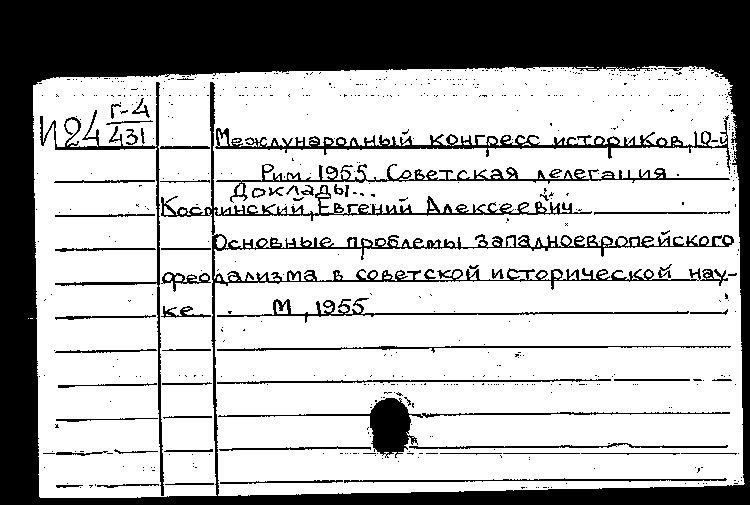 И24 Г-4
431
Международный конгресс историков, 10-й
Рим. 1955. Советская делегация.
Доклады...
Косминский, Евгений Алексеевич
Основные проблемы западноевропейского
феодализма в советской исторической нау-
ке. М, 1955.